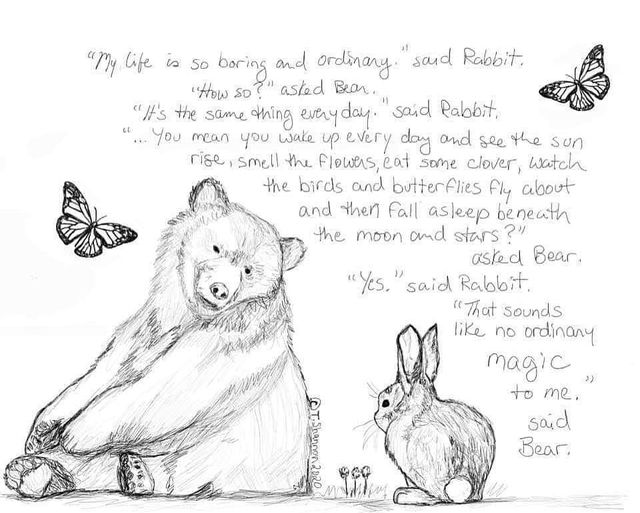 "My life is so boring and ordinary." said Rabbit.
"How so?" asked Bear.
"It's the same thing every day." said Rabbit.
"... You mean you wake up every day and see the sun
rise, smell the flowers, eat some clover, watch
the birds and butterflies fly about
and then fall asleep beneath
the moon and stars?"
asked Bear.
"Yes." said Rabbit.
"That sounds
like no ordinary
magic
to me."
said
Bear.
© T. Shannon 2020